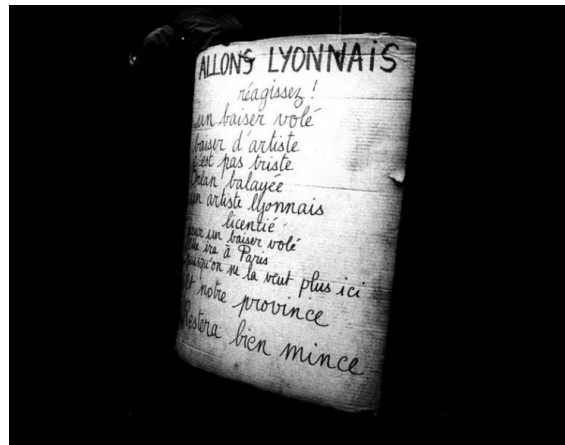 ALLONS LYONNAIS
réagissez !
un baiser volé
baiser d'artiste
c'est pas triste
Orlan balayée
un artiste lyonnais
licentié
pour un baiser volé
elle ira à Paris
puisqu'on ne la veut plus ici
et notre province
Restera bien mince